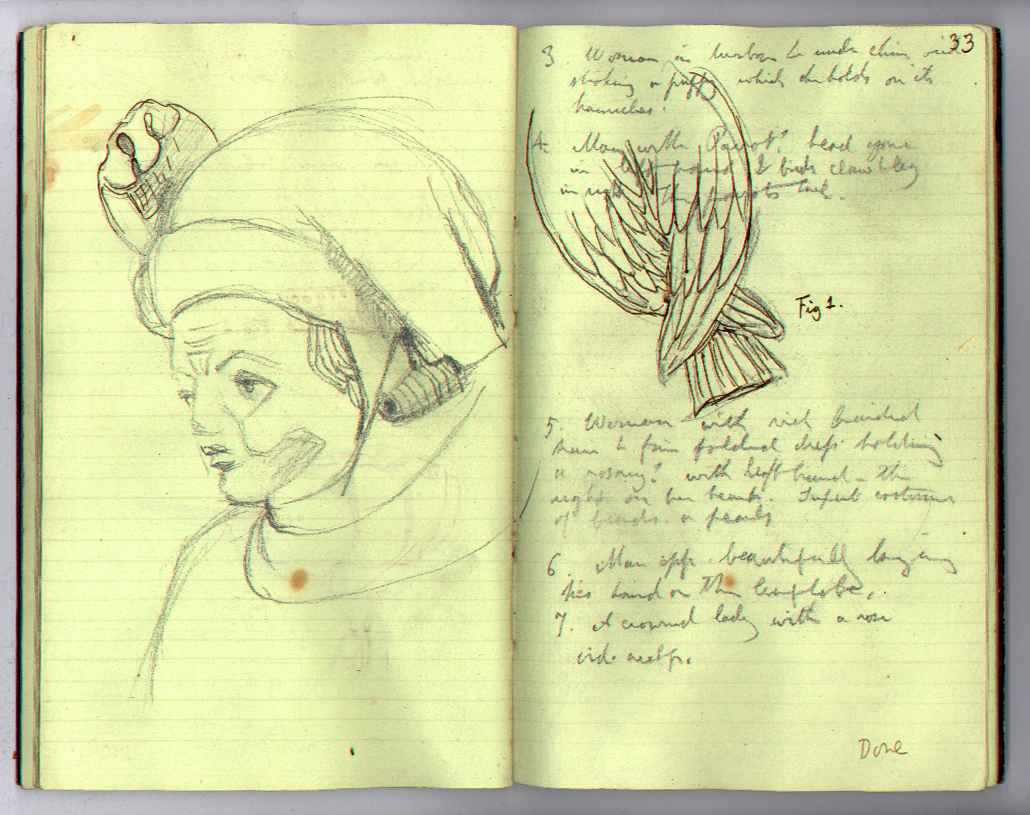 33
3 Woman in turban & under chin
stroking a puppy which she holds on its
haunches.
4. Man with Parrot? head gone
in left hand & birds claw & leg
in right the parrots tail.
Fig 1.
5. Woman with rich braided
holding
a rosary? with left hand - the
right on her heart. costume
of beads or pearls
6. Man opp. beautifully
his hand on the
7. A crowned lady with a rose
vid.
Done